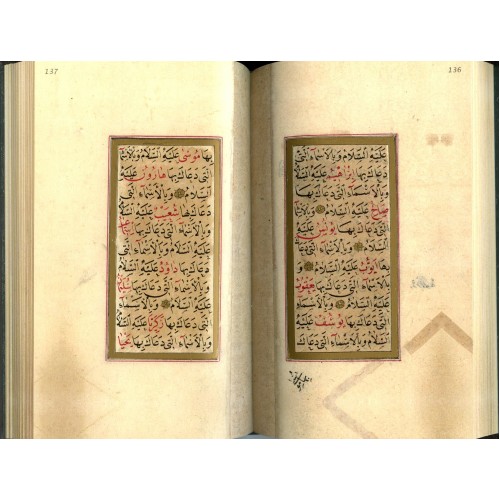 136
عَلَيْهِ السَّلَامُ وَبِالْأَسْمَاءِ الَّتِي
دَعَاكَ بِهَا إِبْرَاهِيمُ عَلَيْهِ
السَّلَامُ ۞ وَبِالْأَسْمَاءِ الَّتِي دَعَاكَ بِهَا
صَالِحٌ عَلَيْهِ السَّلَامُ ۞ وَبِالْأَسْمَاءِ الَّتِي
دَعَاكَ بِهَا يُونُسُ عَلَيْهِ
السَّلَامُ ۞ وَبِالْأَسْمَاءِ الَّتِي دَعَاكَ
بِهَا أَيُّوبُ عَلَيْهِ السَّلَامُ ۞ وَبِالْأَسْمَاءِ
الَّتِي دَعَاكَ بِهَا يَعْقُوبُ
عَلَيْهِ السَّلَامُ ۞ وَبِالْأَسْمَاءِ
الَّتِي دَعَاكَ بِهَا يُوسُفُ عَلَيْهِ
السَّلَامُ وَبِالْأَسْمَاءِ الَّتِي دَعَاكَ
137
بِهَا مُوسَى عَلَيْهِ السَّلَامُ وَبِالْأَسْمَاءِ
الَّتِي دَعَاكَ بِهَا هَارُونُ عَلَيْهِ
السَّلَامُ ۞ وَبِالْأَسْمَاءِ الَّتِي
دَعَاكَ بِهَا شُعَيْبٌ عَلَيْهِ السَّلَامُ
وَبِالْأَسْمَاءِ الَّتِي دَعَاكَ بِهَا
عَلَيْهِ السَّلَامُ وَبِالْأَسْمَاءِ الَّتِي
دَعَاكَ بِهَا دَاوُدُ عَلَيْهِ السَّلَامُ
وَبِالْأَسْمَاءِ الَّتِي دَعَاكَ بِهَا سُلَيْمَانُ
عَلَيْهِ السَّلَامُ ۞ وَبِالْأَسْمَاءِ
الَّتِي دَعَاكَ بِهَا زَكَرِيَّا عَلَيْهِ السَّلَامُ
وَبِالْأَسْمَاءِ الَّتِي دَعَاكَ بِهَا يَحْيَى